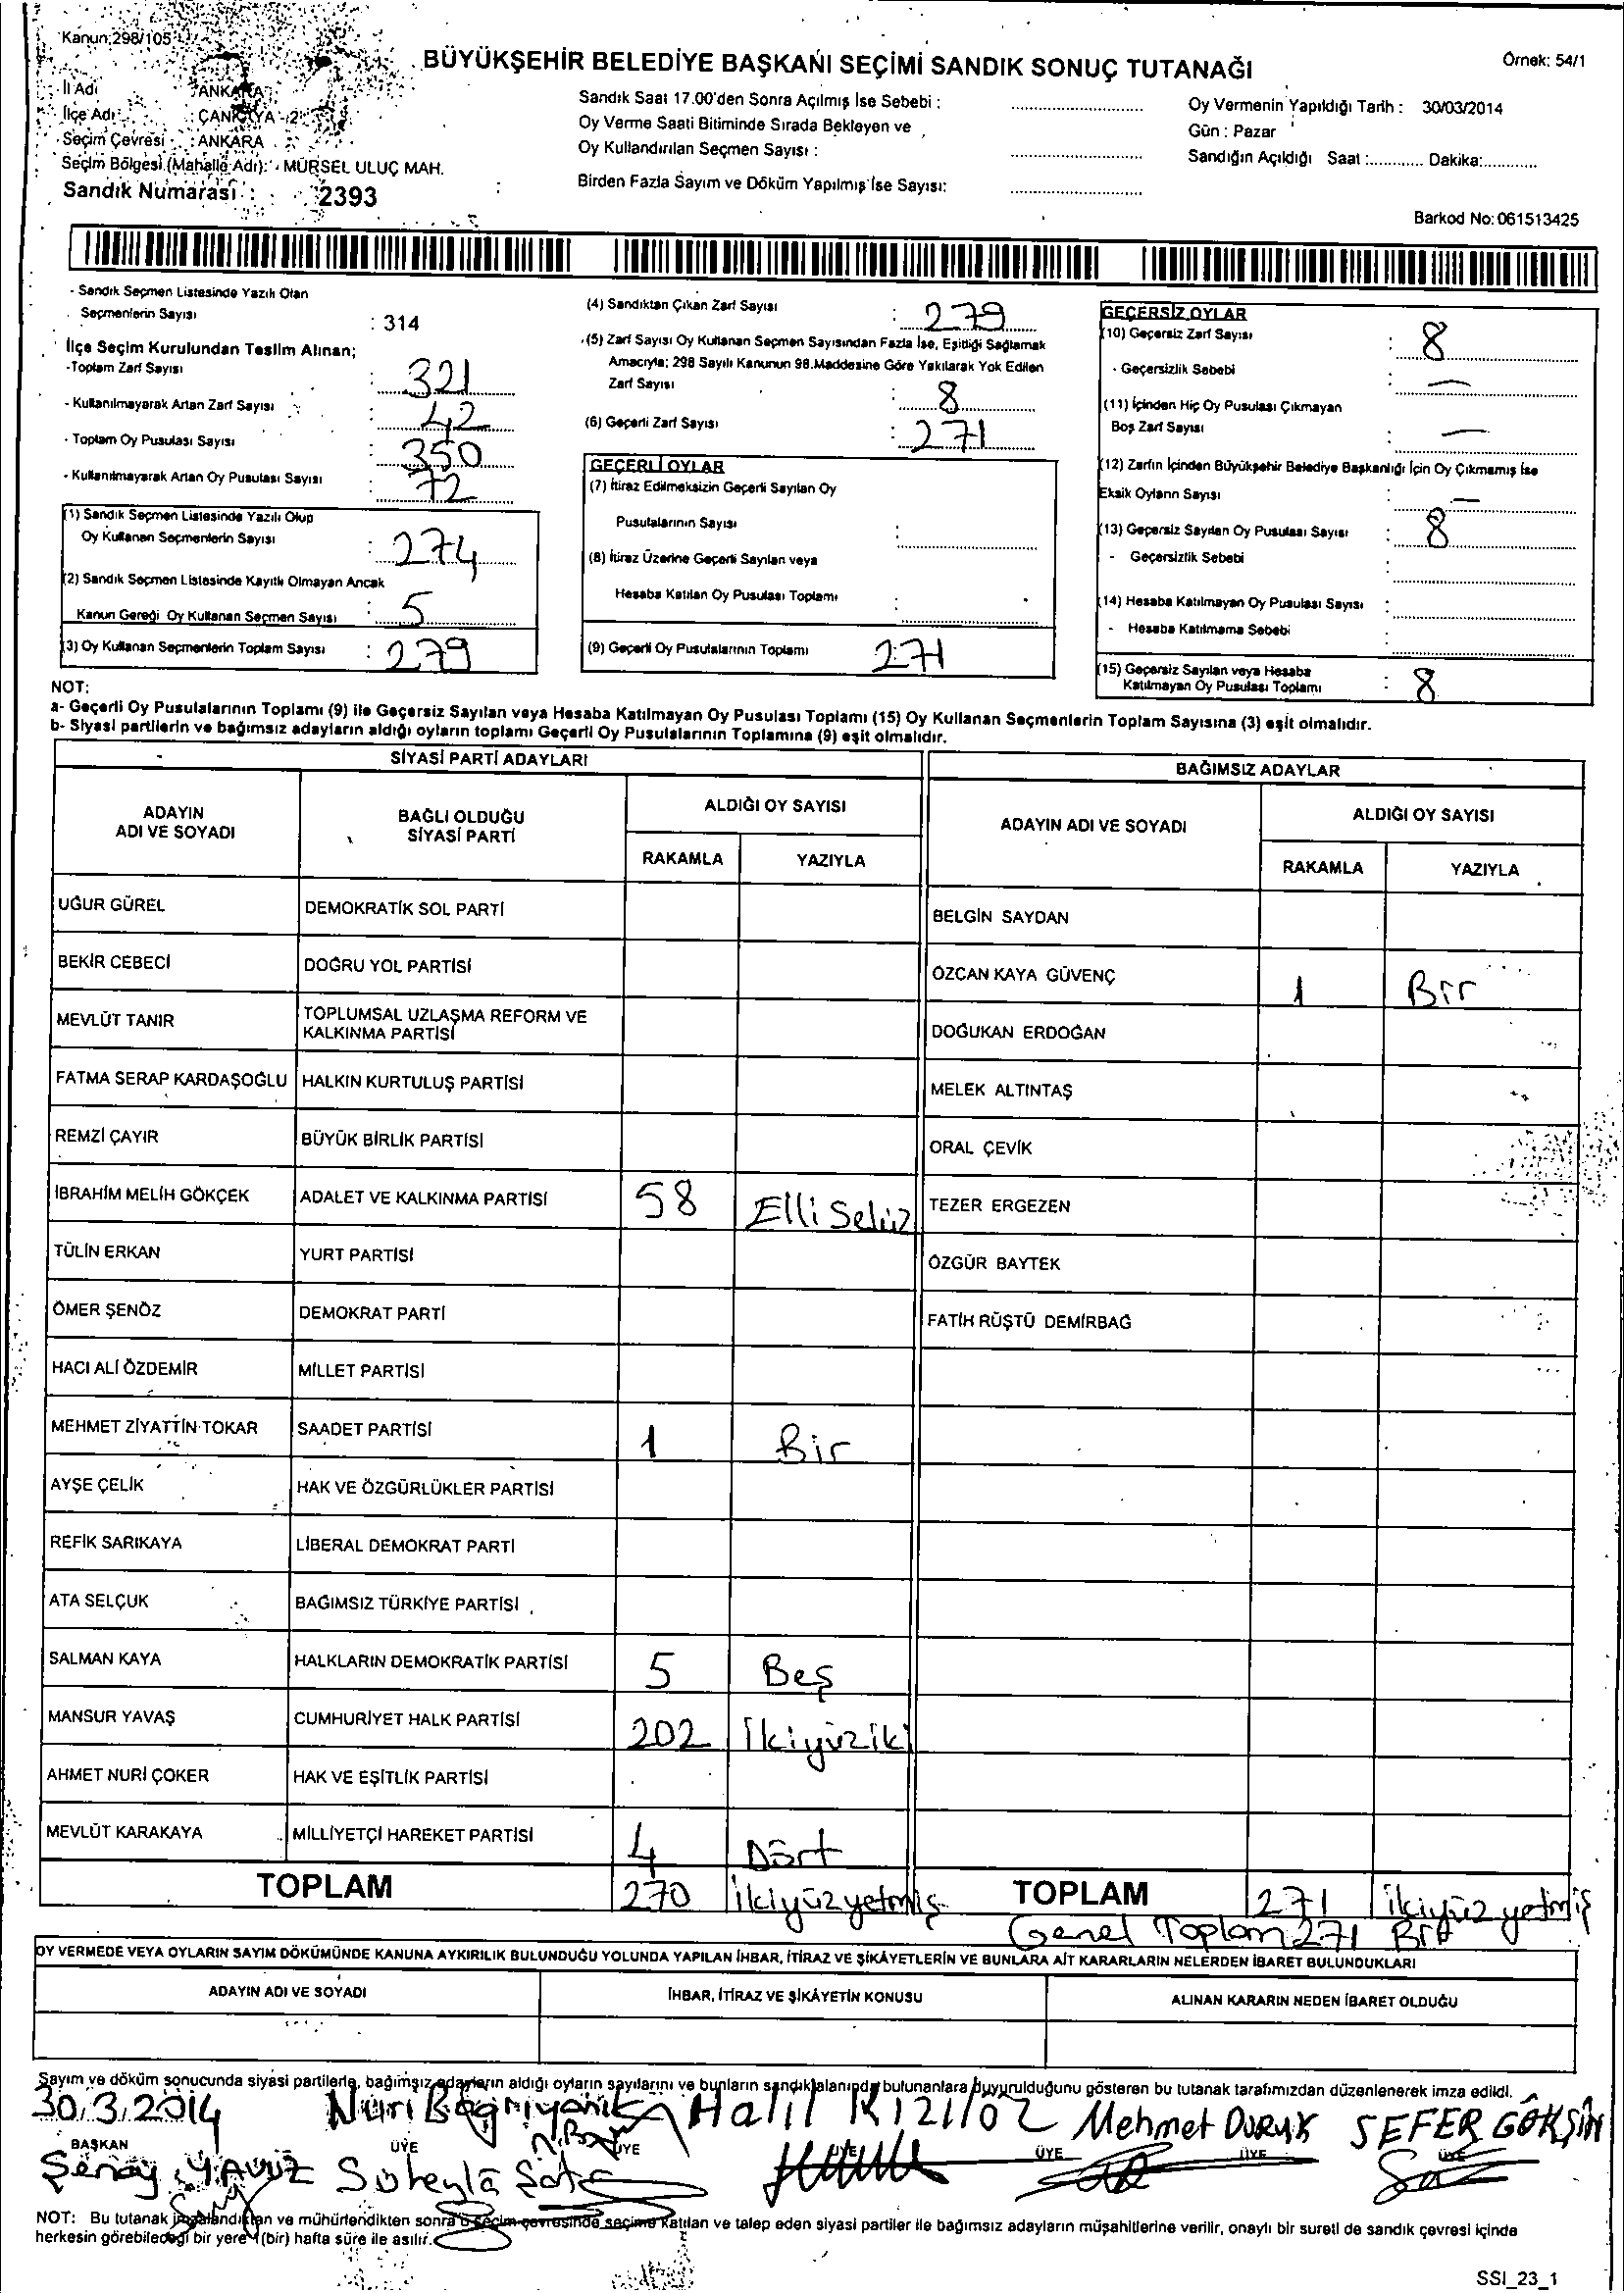 Kanun;298/105
BÜYÜKŞEHİR BELEDİYE BAŞKANI SEÇİMİ SANDIK SONUÇ TUTANAĞI
Örnek: 54/1
İl Adı : ANKARA
İlçe Adı : ÇANKAYA -2
Seçim Çevresi : ANKARA
Seçim Bölgesi (Mahalle Adı): MÜRSEL ULUÇ MAH.
Sandık Numarası : 2393
Sandık Saat 17.00'den Sonra Açılmış İse Sebebi :
Oy Verme Saati Bitiminde Sırada Bekleyen ve
Oy Kullandırılan Seçmen Sayısı :
Birden Fazla Sayım ve Döküm Yapılmış İse Sayısı:
Oy Vermenin Yapıldığı Tarih : 30/03/2014
Gün : Pazar
Sandığın Açıldığı Saat :............ Dakika:............
Barkod No:061513425
- Sandık Seçmen Listesinde Yazılı Olan
Seçmenlerin Sayısı : 314
İlçe Seçim Kurulundan Teslim Alınan;
-Toplam Zarf Sayısı : 321
- Kullanılmayarak Artan Zarf Sayısı : 42
- Toplam Oy Pusulası Sayısı : 350
- Kullanılmayarak Artan Oy Pusulası Sayısı : 72
(1) Sandık Seçmen Listesinde Yazılı Olup
Oy Kullanan Seçmenlerin Sayısı : 274
(2) Sandık Seçmen Listesinde Kayıtlı Olmayan Ancak
Kanun Gereği Oy Kullanan Seçmen Sayısı : 5
(3) Oy Kullanan Seçmenlerin Toplam Sayısı : 279
(4) Sandıktan Çıkan Zarf Sayısı : 279
(5) Zarf Sayısı Oy Kullanan Seçmen Sayısından Fazla İse, Eşitliği Sağlamak
Amacıyla; 298 Sayılı Kanunun 98.Maddesine Göre Yakılarak Yok Edilen
Zarf Sayısı : 8
(6) Geçerli Zarf Sayısı : 271
GEÇERLİ OYLAR
(7) İtiraz Edilmeksizin Geçerli Sayılan Oy
Pusulalarının Sayısı :
(8) İtiraz Üzerine Geçerli Sayılan veya
Hesaba Katılan Oy Pusulası Toplamı :
(9) Geçerli Oy Pusulalarının Toplamı 271
GEÇERSİZ OYLAR
(10) Geçersiz Zarf Sayısı : 8
- Geçersizlik Sebebi : —
(11) İçinden Hiç Oy Pusulası Çıkmayan
Boş Zarf Sayısı : —
(12) Zarfın İçinden Büyükşehir Belediye Başkanlığı İçin Oy Çıkmamış İse
Eksik Oyların Sayısı : —
(13) Geçersiz Sayılan Oy Pusulası Sayısı : 8
- Geçersizlik Sebebi :
(14) Hesaba Katılmayan Oy Pusulası Sayısı :
- Hesaba Katılmama Sebebi :
(15) Geçersiz Sayılan veya Hesaba
Katılmayan Oy Pusulası Toplamı : 8
NOT:
a- Geçerli Oy Pusulalarının Toplamı (9) ile Geçersiz Sayılan veya Hesaba Katılmayan Oy Pusulası Toplamı (15) Oy Kullanan Seçmenlerin Toplam Sayısına (3) eşit olmalıdır.
b- Siyasi partilerin ve bağımsız adayların aldığı oyların toplamı Geçerli Oy Pusulalarının Toplamına (9) eşit olmalıdır.
SİYASİ PARTİ ADAYLARI
ADAYIN ADI VE SOYADI BAĞLI OLDUĞU SİYASİ PARTİ ALDIĞI OY SAYISI
RAKAMLA YAZIYLA
UĞUR GÜREL DEMOKRATİK SOL PARTİ
BEKİR CEBECİ DOĞRU YOL PARTİSİ
MEVLÜT TANIR TOPLUMSAL UZLAŞMA REFORM VE KALKINMA PARTİSİ
FATMA SERAP KARDAŞOĞLU HALKIN KURTULUŞ PARTİSİ
REMZİ ÇAYIR BÜYÜK BİRLİK PARTİSİ
İBRAHİM MELİH GÖKÇEK ADALET VE KALKINMA PARTİSİ 58 Elli Sekiz
TÜLİN ERKAN YURT PARTİSİ
ÖMER ŞENÖZ DEMOKRAT PARTİ
HACI ALİ ÖZDEMİR MİLLET PARTİSİ
MEHMET ZİYATTİN TOKAR SAADET PARTİSİ 1 Bir
AYŞE ÇELİK HAK VE ÖZGÜRLÜKLER PARTİSİ
REFİK SARIKAYA LİBERAL DEMOKRAT PARTİ
ATA SELÇUK BAĞIMSIZ TÜRKİYE PARTİSİ
SALMAN KAYA HALKLARIN DEMOKRATİK PARTİSİ 5 Beş
MANSUR YAVAŞ CUMHURİYET HALK PARTİSİ 202 İkiyüziki
AHMET NURİ ÇOKER HAK VE EŞİTLİK PARTİSİ
MEVLÜT KARAKAYA MİLLİYETÇİ HAREKET PARTİSİ 4 Dört
TOPLAM 270 ikiyüzyetmiş
BAĞIMSIZ ADAYLAR
ADAYIN ADI VE SOYADI ALDIĞI OY SAYISI
RAKAMLA YAZIYLA
BELGİN SAYDAN
ÖZCAN KAYA GÜVENÇ 1 Bir
DOĞUKAN ERDOĞAN
MELEK ALTINTAŞ
ORAL ÇEVİK
TEZER ERGEZEN
ÖZGÜR BAYTEK
FATİH RÜŞTÜ DEMİRBAĞ
TOPLAM 271 ikiyüz yetmiş
Genel Toplam 271 Bir
OY VERMEDE VEYA OYLARIN SAYIM DÖKÜMÜNDE KANUNA AYKIRILIK BULUNDUĞU YOLUNDA YAPILAN İHBAR, İTİRAZ VE ŞİKAYETLERİN VE BUNLARA AİT KARARLARIN NELERDEN İBARET BULUNDUKLARI
ADAYIN ADI VE SOYADI İHBAR, İTİRAZ VE ŞİKAYETİN KONUSU ALINAN KARARIN NEDEN İBARET OLDUĞU
Sayım ve döküm sonucunda siyasi partilerle, bağımsız adayların aldığı oyların sayılarını ve bunların sandık alanında bulunanlara duyurulduğunu gösteren bu tutanak tarafımızdan düzenlenerek imza edildi.
30.3.2014 Nuri Bağrıyanık Halil KIZILÖZ Mehmet DURUK SEFER GÖKŞİN
BAŞKAN ÜYE ÜYE ÜYE ÜYE ÜYE ÜYE
Şenay YAVUZ Süheyla
NOT: Bu tutanak imzalandıktan ve mühürlendikten sonra o seçim çevresinde seçime katılan ve talep eden siyasi partiler ile bağımsız adayların müşahitlerine verilir, onaylı bir sureti de sandık çevresi içinde
herkesin görebileceği bir yere 1 (bir) hafta süre ile asılır.
SSI_23_1